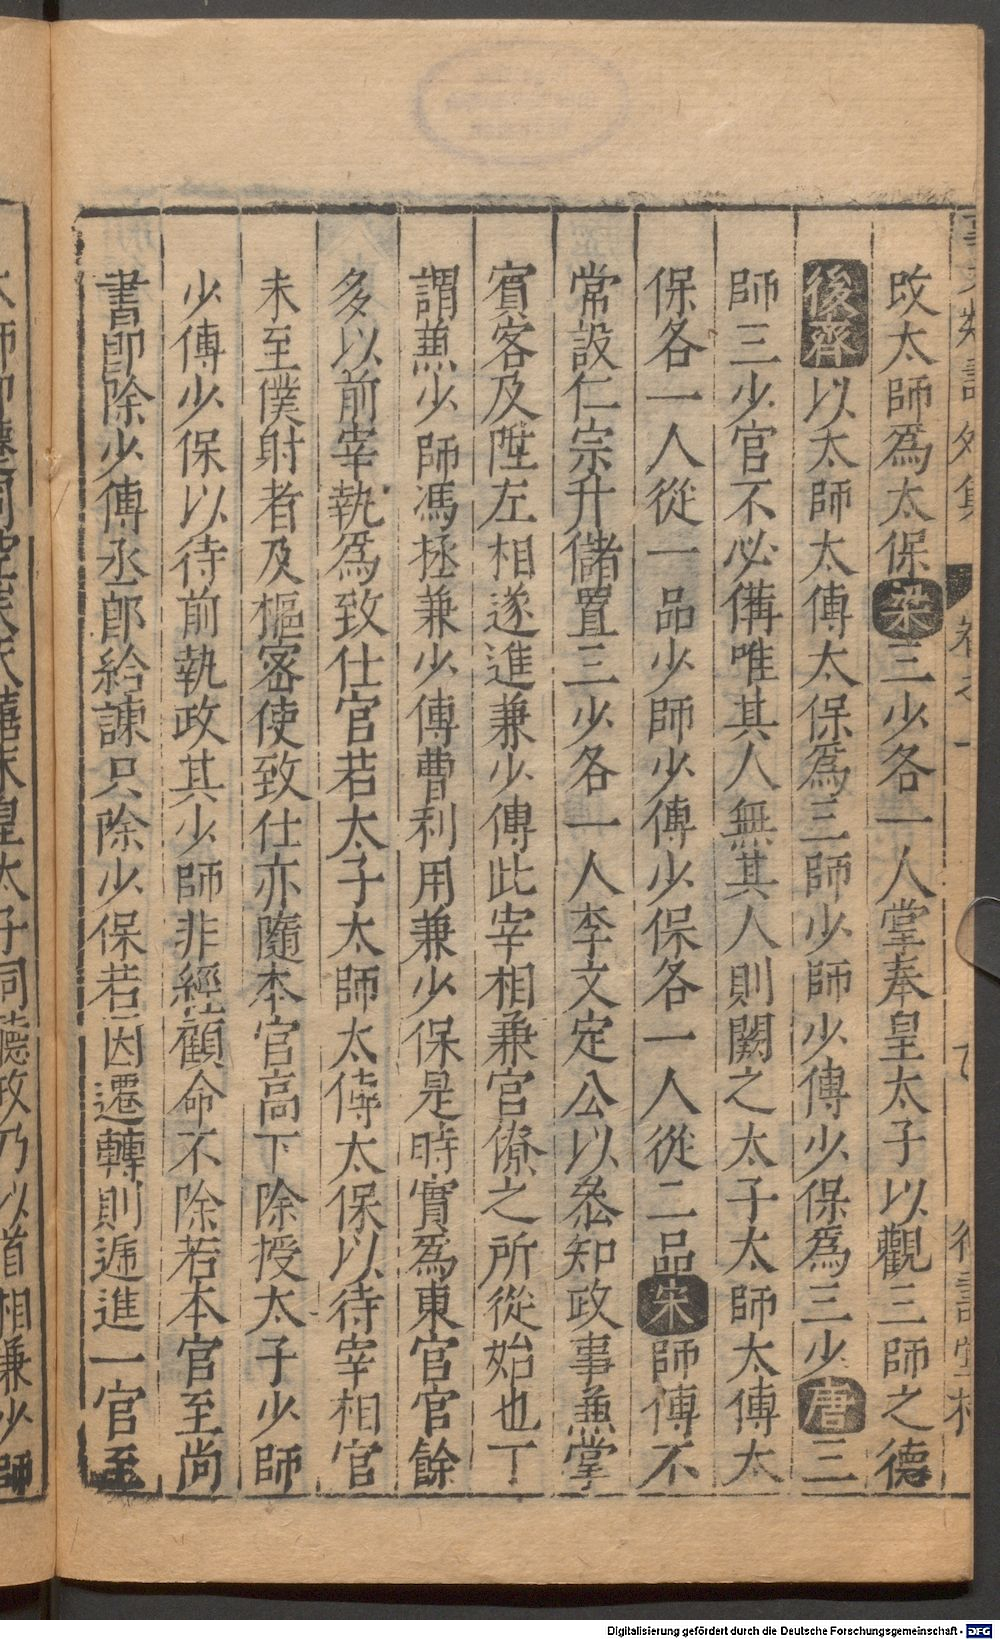 改太師爲太保梁三少各一人掌奉皇太子以觀三師之德
後齊以太師太傅太保爲三師少師少傅少保爲三少唐三
師三少官不必備唯其人無其人則闕之太子太師太傅太
保各一人從一品少師少傅少保各一人從二品宋師傅不
常設仁宗升儲置三少各一人李文定公以叅知政事兼掌
賓客及陞左相遂進兼少傅此宰相兼官僚之所從始也丁
謂兼少師馮拯兼少傅曹利用兼少保是時實爲東官官餘
多以前宰執爲致仕官若太子太師太傅太保以待宰相官
未至僕射者及樞密使致仕亦隨本官高下除授太子少師
少傅少保以待前執政其少師非經顧命不除若本官至尚
書即除少傅丞郎給諫只除少保若因遷轉則遞進一官至
皇太子同聽政乃以首相兼少師
Digitalisierung gefördert durch die Deutsche Forschungsgemeinschaft - DFG